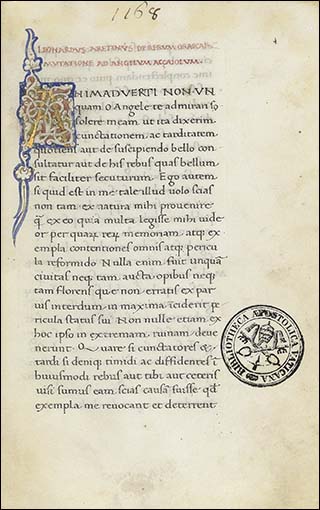 1168
LEONARDUS ARETINUS DE RERUM GRAECAR
MUTATIONE AD ANGELUM ACCAIOLUM
ANIMADVERTI NON UN
quam o Angele te admirari so
lere meam ut ita dixerim
cunctationem ac tarditatem
quotiens aut de suscipiendo bello con
sultatur aut de his rebus quas bellum
sit faciliter secuturum Ego autem
si quid est in me tale illud volo scias
non tam ex natura mihi provenire
q̃ ex eo quia multa legisse mihi vide
or per quaꝝ reꝝ memoriam atqꝫ ex
empla contentiones omnis atqꝫ pericu
la reformido Nulla enim fuit unquã
civitas neqꝫ tam aucta opibus neqꝫ
tam florens quę non erratis ex par
vis interdum in maxima inciderit pe
ricula status sui Non nullę etiam ex
hoc ipso in extremam ruinam deve
nerunt Quare si cunctatores &
tardi si deniqꝫ timidi ac diffidentes
huiusmodi rebus aut tibi aut ceteris
visi sumus eam scias causã fuisse qđ
exempla me revocant et deterrent
BIBLIOTHECA APOSTOLICA VATICANA